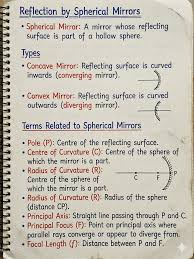 Reflection by Spherical Mirrors
• Spherical Mirror: A mirror whose reflecting
surface is part of a hollow sphere.
Types
• Concave Mirror: Reflecting surface is curved
inwards (converging mirror).
• Convex Mirror: Reflecting surface is curved
outwards (diverging mirror).
Terms Related to Spherical Mirrors
• Pole (P): Centre of the reflecting surface.
• Centre of Curvature (C): Centre of the sphere of
which the mirror is a part.
• Radius of Curvature (R): Centre of the sphere of
which the mirror is a part.
• Radius of Curvature (R): Radius of the sphere
(distance CP).
• Principal Axis: Straight line passing through P and C.
• Principal Focus (F): Point on principal axis where
parallel rays converge or appear to diverge from.
• Focal Length (f): Distance between P and F.
C F P